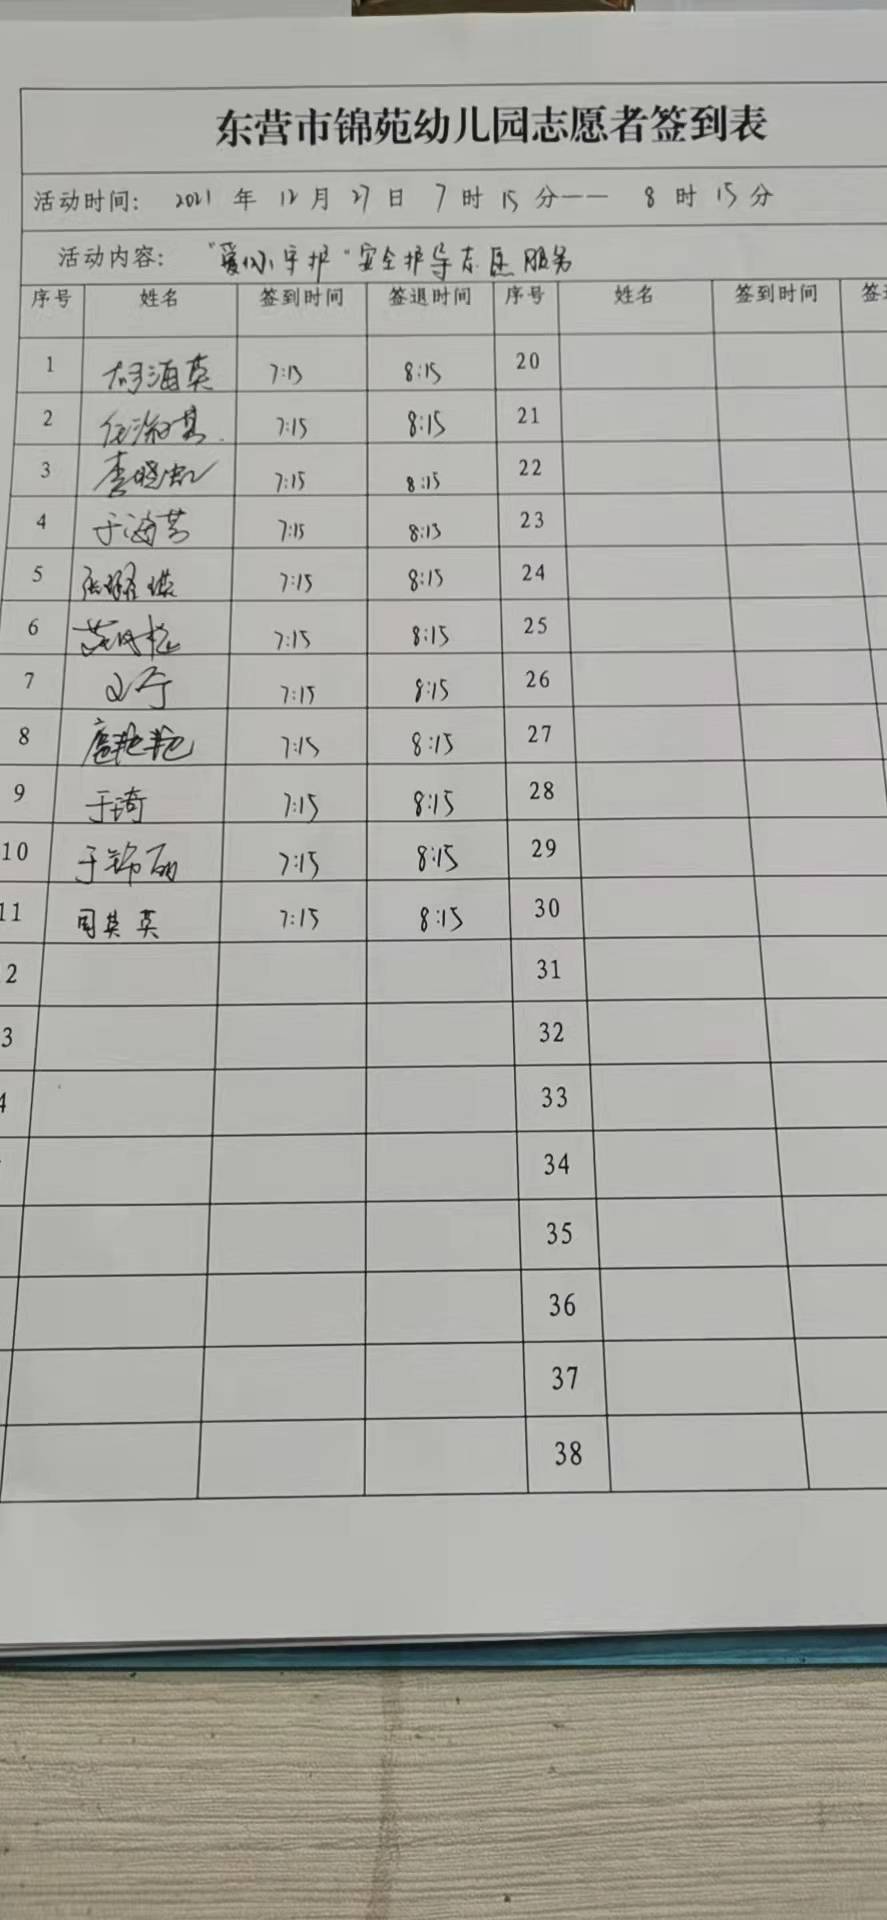 东营市锦苑幼儿园志愿者签到表
活动时间: 2021 年 12 月 27 日 7 时 15 分—— 8 时 15 分
活动内容: "爱心守护"安全护导志愿服务
序号 姓名 签到时间 签退时间 序号 姓名 签到时间
1 7:15 8:15 20
2 7:15 8:15 21
3 李晓虹 7:15 8:15 22
4 于海芳 7:15 8:15 23
5 7:15 8:15 24
6 7:15 8:15 25
7 7:15 8:15 26
8 7:15 8:15 27
9 于琦 7:15 8:15 28
10 于锦丽 7:15 8:15 29
11 周英英 7:15 8:15 30
2 31
3 32
4 33
34
35
36
37
38